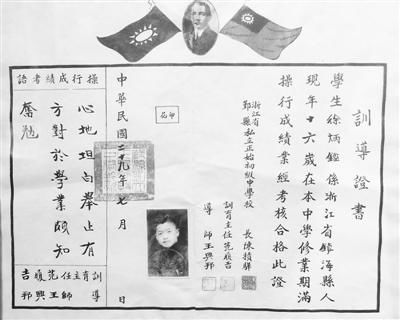 訓導證書
學生徐炳鎧係浙江省鎮海縣人
現年十六歲在本中學修業期滿
操行成績業經考核合格此證
浙江省
鄞縣私立正始初級中學校
長陳積驊
訓育主任范履吉
導師王興邦
印花
中華民國二十九年七月 日
操行成績考語
心地坦白舉止有
方對於學業頗知
奮勉
訓育主任范履吉
導師王興邦